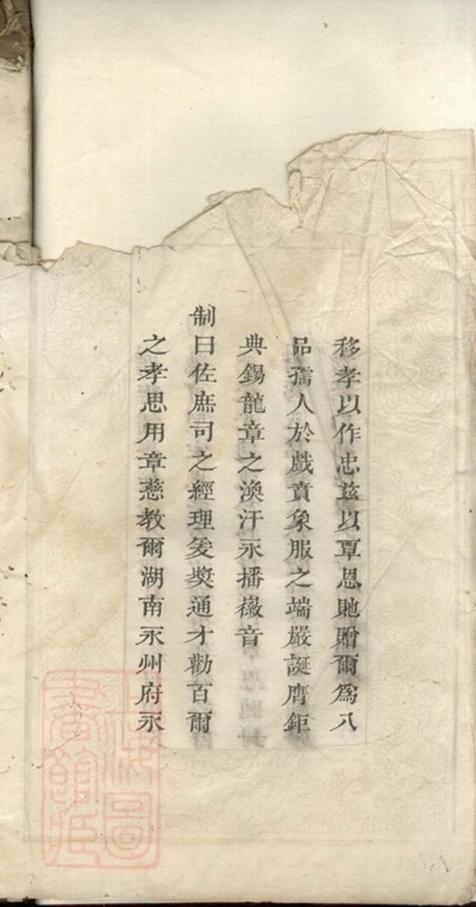 移孝以作忠兹以覃恩貤贈爾爲八
品孺人於戲賁象服之端嚴誕膺鉅
典錫龍章之渙汗永播徽音
制曰佐庶司之經理爰奬通才勸百爾
之孝思用章慈教爾湖南永州府永